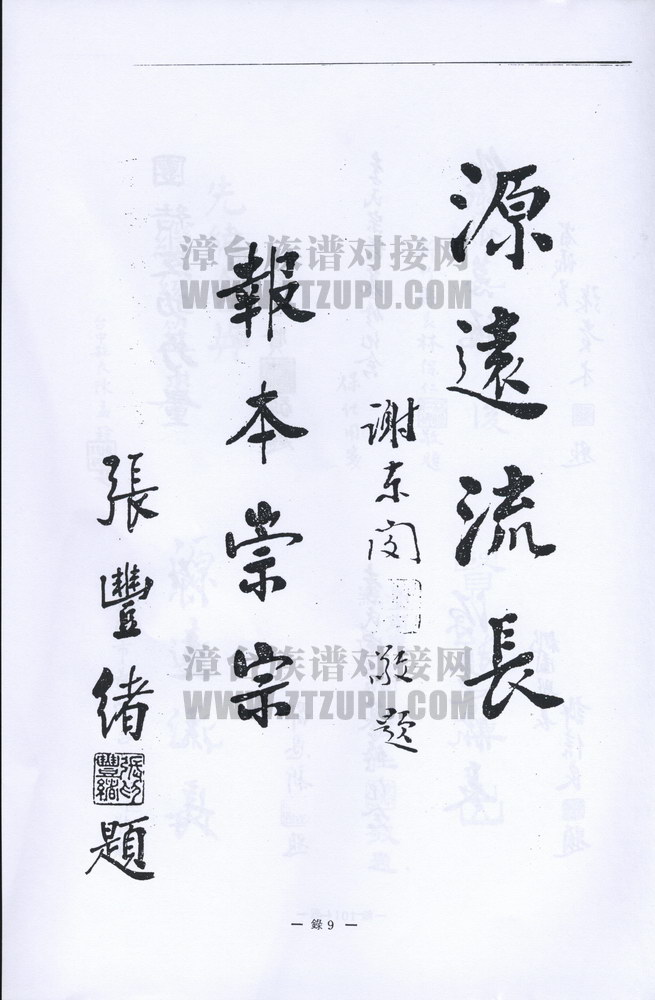 源遠流長
谢东闵敬题
報本崇宗
張豐緒
張豐緒印
題
漳台族谱对接网
WWW.ZTZUPU.COM
漳台族谱对接网
WWW.ZTZUPU.COM
— 錄 9 —